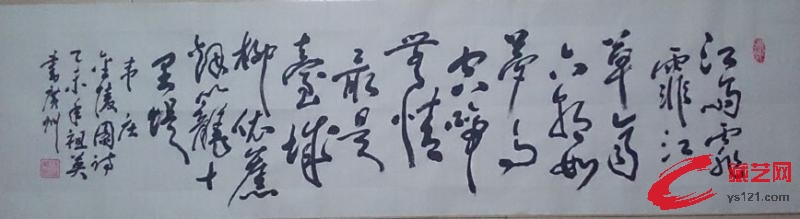 江雨霏
霏江
草齐
六朝如
梦鸟
空啼
無情
最是
臺城
柳依舊
烟籠十
里堤
韦庄
金陵圖诗
乙未年祖英
書於广州
藏艺网
ys121.com